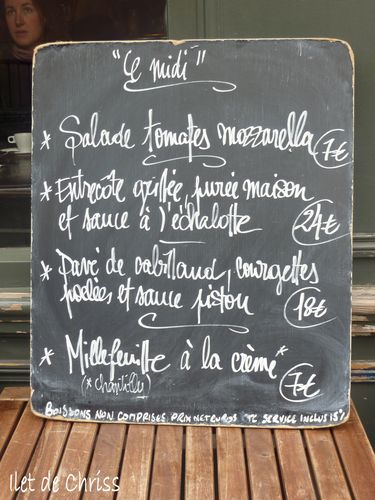 "Le midi"
* Salade tomates mozzarella 7€
* Entrecôte grillée, purée maison
et sauce à l'échalotte 24€
* Pavé de cabillaud, courgettes
poelées et sauce pistou 18€
* Millefeuille à la crème* 7€
(* chantilly)
BOISSONS NON COMPRISES PRIX NET EUROS TC SERVICE INCLUS 15%
Ilet de Chriss